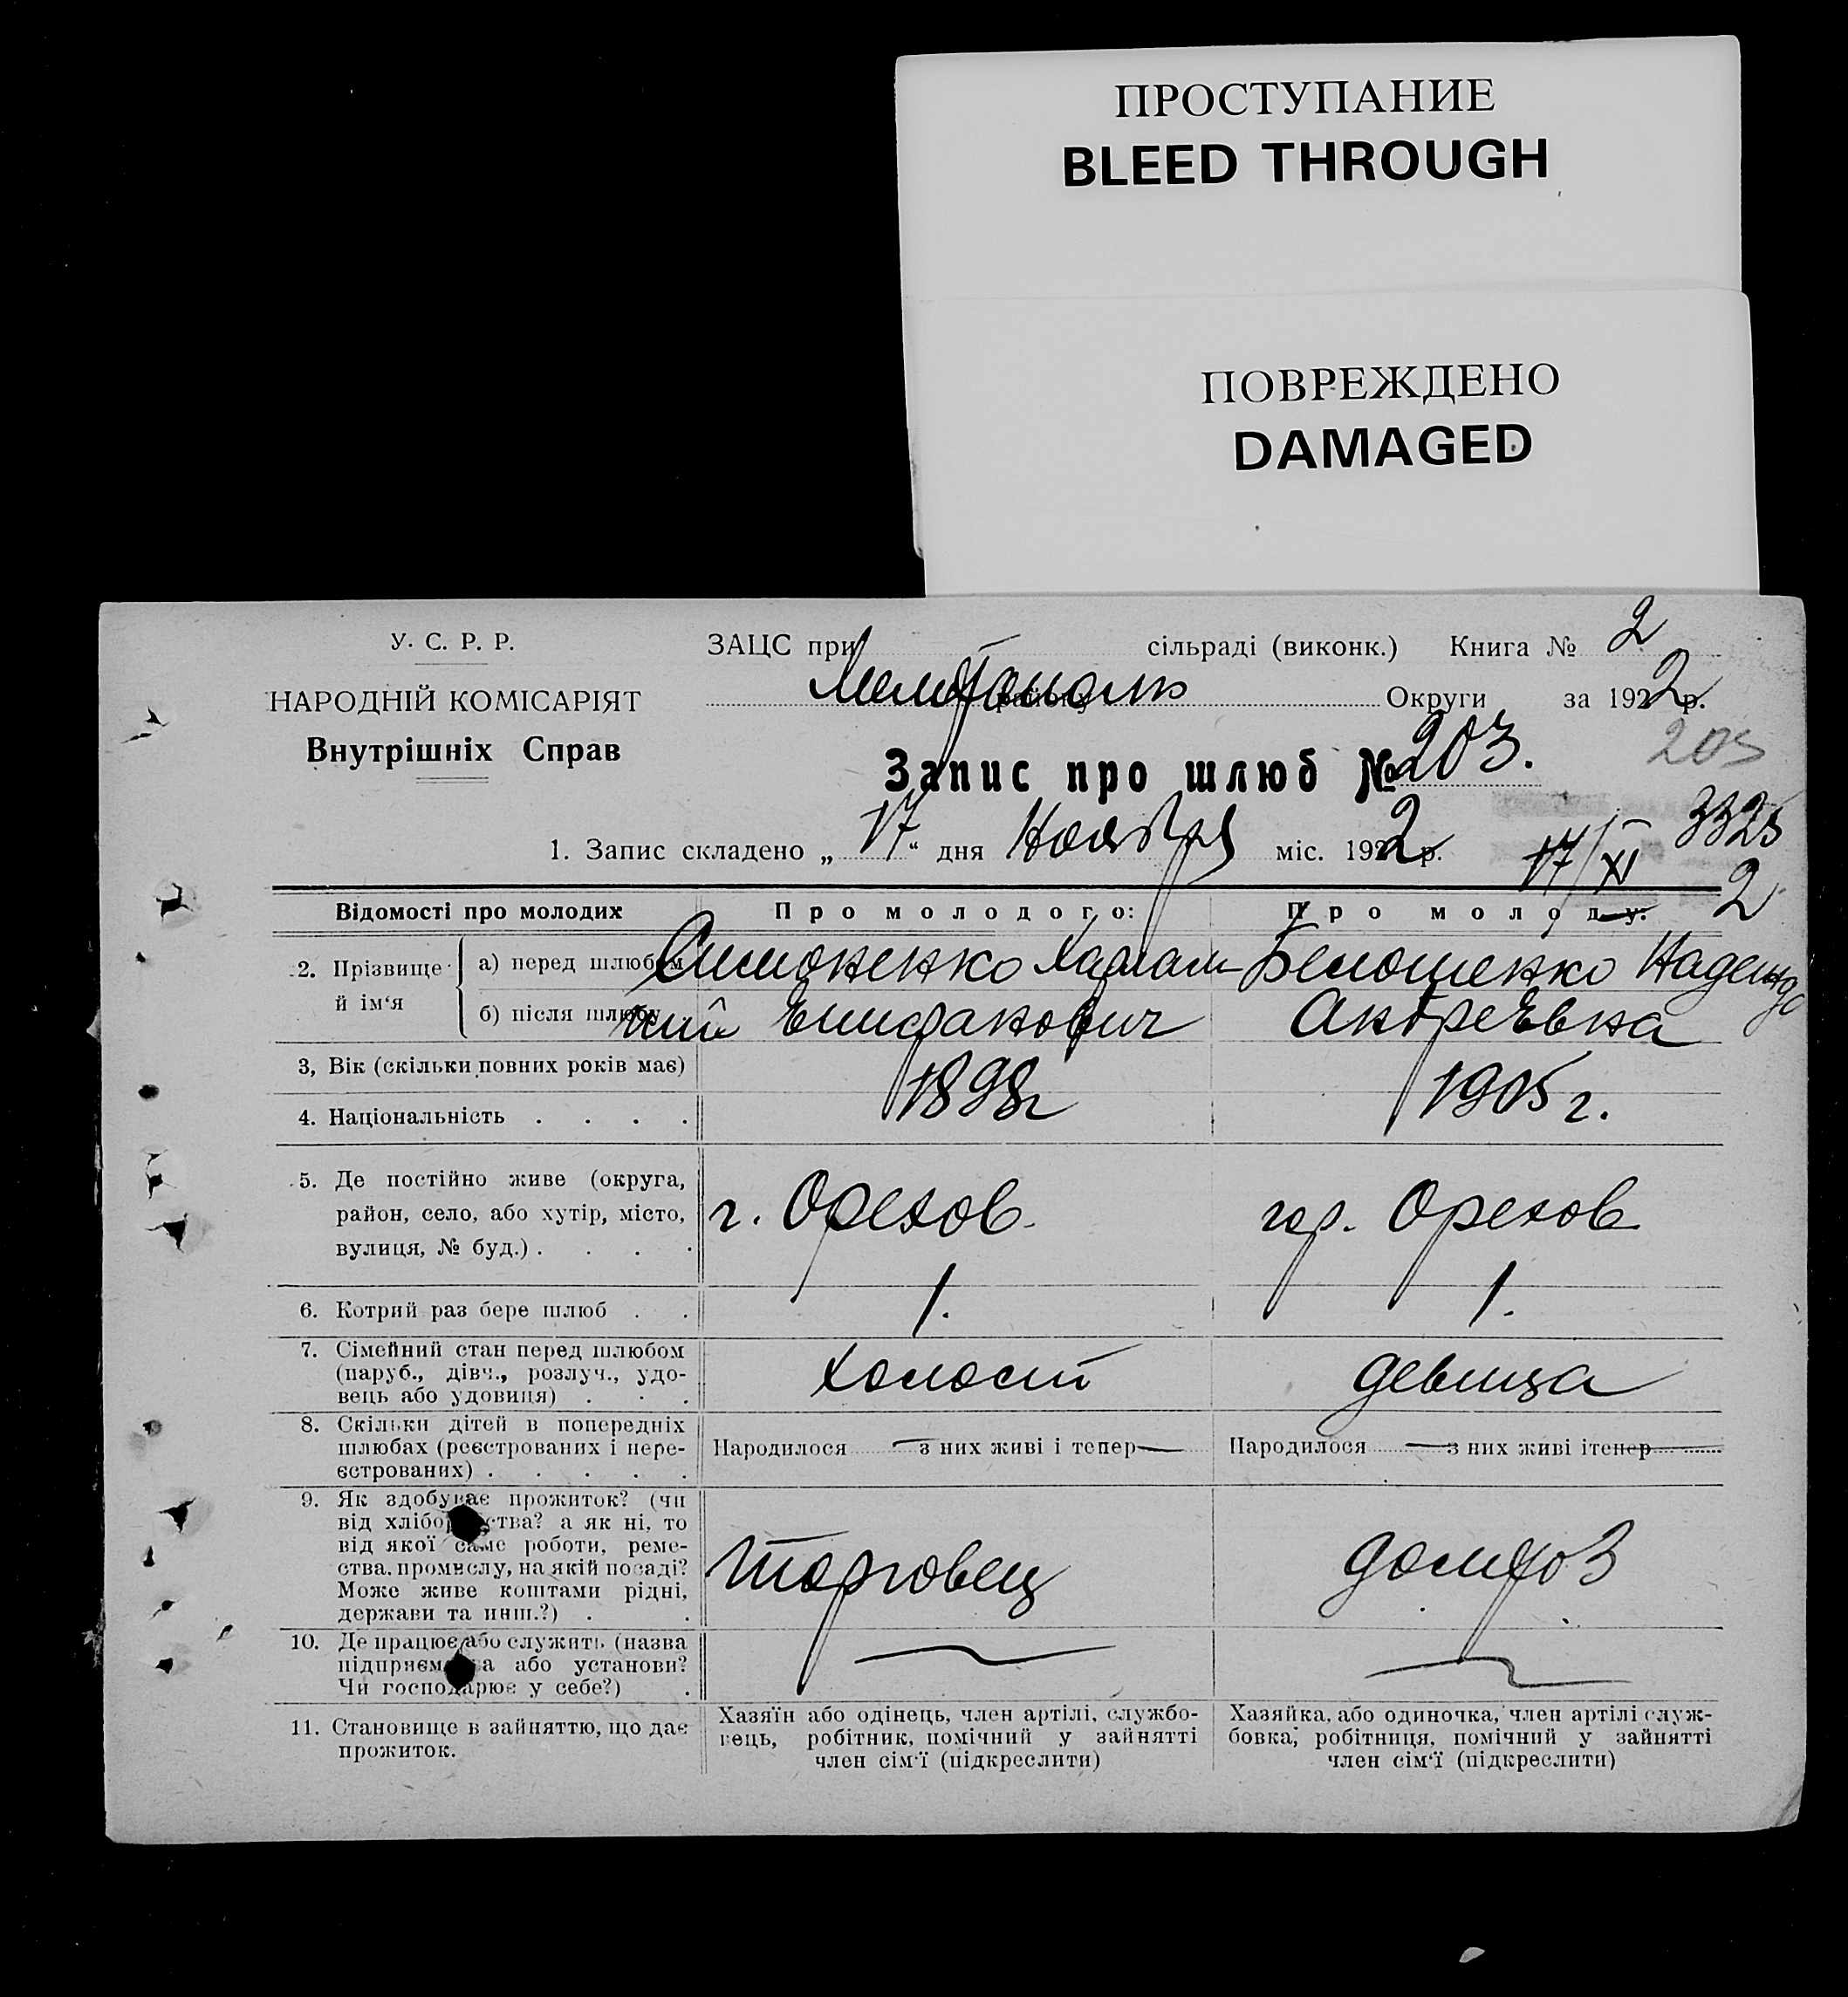 ПРОСТУПАНИЕ
BLEED THROUGH
ПОВРЕЖДЕНО
DAMAGED
У. С. Р. Р.
НАРОДНІЙ КОМІСАРІЯТ
Внутрішніх Справ
ЗАЦС при сільраді (виконк.) Книга № 2
району Округи за 1922 р.
Запис про шлюб № 203.
203
3325
1. Запис складено „17“ дня Ноября міс. 1922 р.
17/XI 2
Відомості про молодих Про молодого: Про молоду:
2. Прізвище й ім‘я
а) перед шлюбом Симоненко Белошенко Надежда
б) після шлюбу Епифанович Андреевна
3, Вік (скільки повних років має) 1898г 1905 г.
4. Національність . . . .
5. Де постійно живе (округа,
район, село, або хутір, місто,
вулиця, № буд.) . . . .
г. Орехов. гор. Орехов
6. Котрий раз бере шлюб . . 1. 1.
7. Сімейний стан перед шлюбом
(паруб., дівч., розлуч., удо-
вець або удовиця) . . .
холост девица
8. Скільки дітей в попередніх
шлюбах (реєстрованих і нере-
єстрованих) . . . . .
Народилося — з них живі і тепер — Народилося — з них живі ітепер
9. Як здобуває прожиток? (чи
від ства? а як ні, то
від якої саме роботи, реме-
ства, промислу, на якій посаді?
Може живе коштами рідні,
держави та инш.?) . .
торговец домхоз
10. Де працює або служить (назва
або установи?
Чи господарює у себе?) .
11. Становище в зайняттю, що дає
прожиток.
Хазяїн або одінець, член артілі, службо-
вець, робітник, помічний у зайнятті
член сім‘ї (підкреслити)
Хазяйка, або одиночка, член артілі служ-
бовка, робітниця, помічний у зайнятті
член сім‘ї (підкреслити)